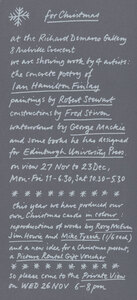 for Christmas
at the Richard Demarco Gallery
8 Melville Crescent
we are showing work by 4 artists:
the concrete poetry of
Ian Hamilton Finlay
paintings by Robert Stewart
constructions by Fred Stiven
watercolours by George Mackie
and some books he has designed
for Edinburgh University Press
on view 27 Nov to 23 Dec,
Mon-Fri 11-6.30, Sat 10.30-5.30
this year we have produced our
own Christmas cards in colour:
reproductions of works by Rory McEwen
Jim Howie and Mike Tyzack (1/6 each)
and a new idea for a Christmas present,
a Picture Rental Gift Voucher
so please come to the Private View
on WED 26 NOV 6-8 pm